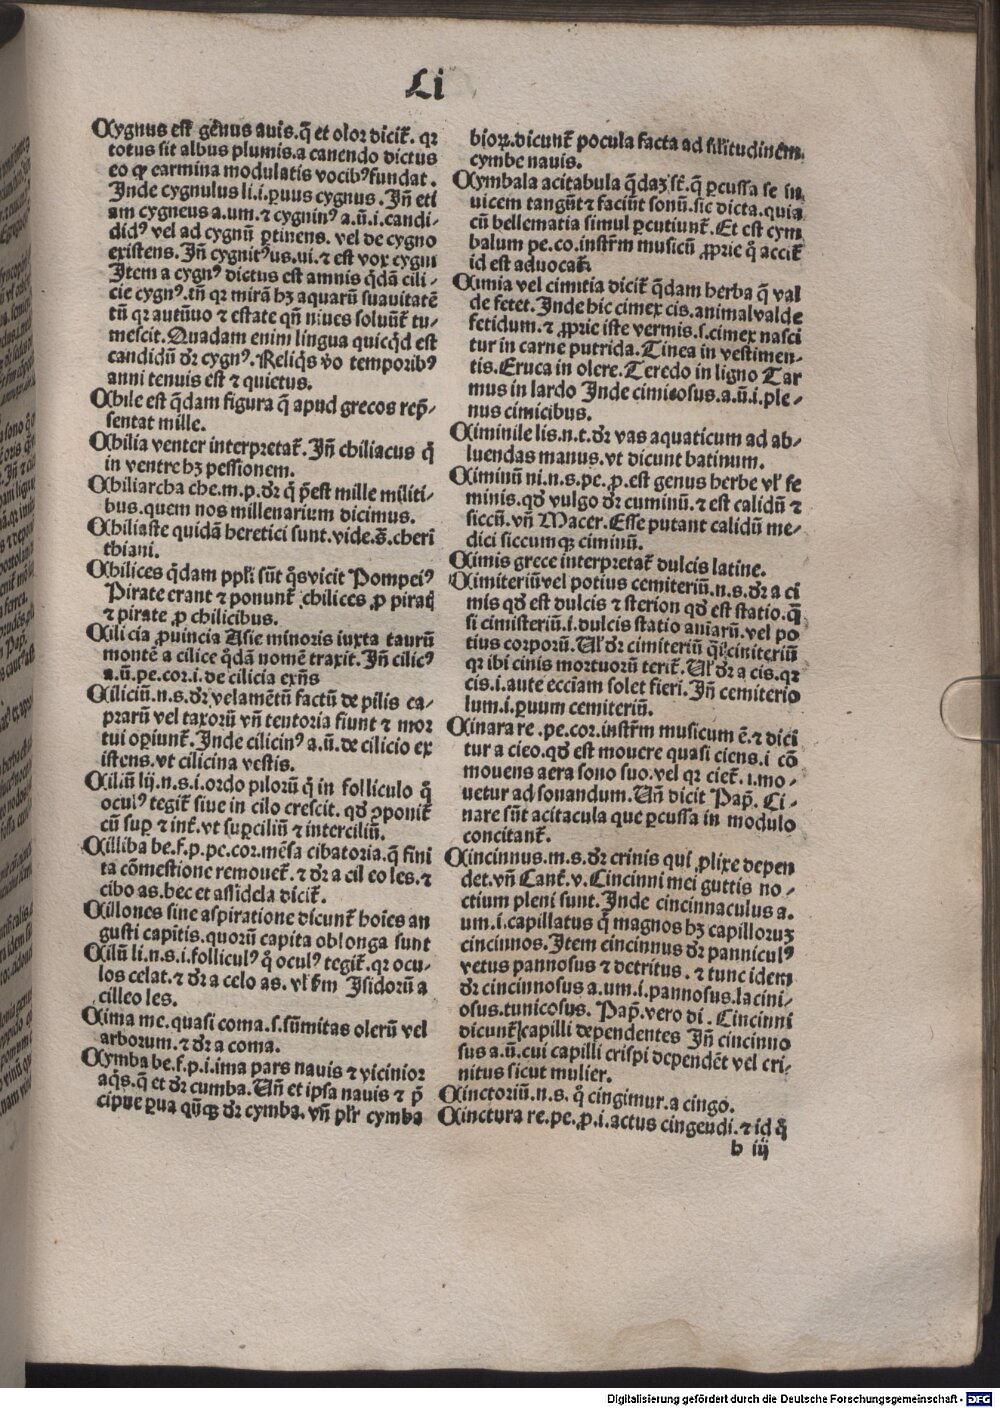 Ci
Cygnus est gēnus auis.q̄ et olor dicit̄. qr
totus sit albus plumis.a canendo dictus
eo ꝙ carmina modulatis vocibꝰ fundat.
Inde cygnulus li.i.ꝑuus cygnus. Iñ eti
am cygneus a.um.⁊ cygninꝰ a.ū.i.candi-
didꝰ vel ad cygnū ꝑtinens. vel de cygno
existens. Iñ cygnitꝰus.ui.⁊ est vox cygni
Item a cygnꝰ dictus est amnis q̄dā cili-
cie cygnꝰ.tñ qr mirā hꝫ aquarū suauitatē
tū qr autūuo ⁊ estate qñ niues soluūt̄ tu-
mescit. Quadam enim lingua quicq̇d est
candidū dr̄ cygnꝰ. Reliq̇s v̊o temporibꝰ
anni tenuis est ⁊ quietus.
Chile est q̄dam figura q̄ apud grecos rep̄-
sentat mille.
Chilia venter interpretat̄. Iñ chiliacus q̇
in ventre hꝫ passionem.
Chiliarcha che.m.p.dr̄ q̇ p̄est mille militi-
bus.quem nos millenarium dicimus.
Chiliaste quidā heretici sunt.vide.s̄.cheri
thiani.
Chilices q̄dam ppl̄i sūt q̇s vicit Pompeiꝰ
Pirate erant ⁊ ponunt̄ chilices ꝓ pirati
⁊ pirate ꝓ chilicibus.
Cilicia ꝓuincia Asie minoris iuxta taurū
montē a cilice q̇dā nomē traxit. Iñ cilicꝰ
a.ū.pe.cor.i.de cilicia exñs
Ciliciū.n.s.dr̄ velamētū factū de pilis ca-
prarū vel taxorū vñ tentoria fiunt ⁊ mor
tui oꝑiunt̄. Inde cilicinꝰ a.ū.de cilicio ex
istens. vt cilicina vestis.
Ciliū lij.n.s.i.ordo pilorū q̇ in folliculo q̇
oculꝰ tegit̄ siue in cilo crescit. qd̄ ꝯponit̄
cū suꝑ ⁊ int̄.vt suꝑciliū ⁊ interciliū.
Cilliba be.f.p.pe.cor.mēsa cibatoria.q̄ fini
ta cōmestione remouet̄. ⁊ dr̄ a cil eo les.⁊
cibo as.hec et assidela dicit̄.
Cillones sine aspiratione dicunt̄ hoīes an
gusti capitis.quorū capita oblonga sunt
Cilū li.n.s.i.folliculꝰ q̊ oculꝰ tegit̄.qr ocu-
los celat.⁊ dr̄ a celo as. vl̄ fm Isidorū a
cilleo les.
Cima me.quasi coma.s.sūmitas olerū vel
arborum.⁊ dr̄ a coma.
Cymba be.f.p.i.ima pars nauis ⁊ vicinior
aq̇s.q̄ et dr̄ cumba. Uñ et ipsa nauis ⁊ p̄
cipue ꝑua qūꝗ dr̄ cymba. vñ pl̄r cymba
bioꝝ.dicunt̄ pocula facta ad sil̄itudinem
cymbe nauis.
Cymbala acitabula q̄daꝫ st̄.q̄ ꝑcussa se in
uicem tangūt ⁊ faciūt sonū.sic dicta.quia
cū bellematia simul ꝑcutiunt̄. Et est cym
balum pe.co.instr̄m musicū ꝓprie q̊ accit̄
id est aduocat̄.
Cimia vel cimitia dicit̄ q̄dam herba q̄ val
de fetet. Inde hic cimex cis.animal valde
fetidum.⁊ ꝓprie iste vermis.s.cimex nasci
tur in carne putrida. Tinea in vestimen-
tis. Eruca in olere. Teredo in ligno Tar
mus in lardo Inde cimicosus.a.ū.i.ple-
nus cimicibus.
Ciminile lis.n.t.dr̄ vas aquaticum ad ab-
luendas manus.vt dicunt batinum.
Ciminū ni.n.s.pe.ꝓ.est genus herbe vl̄ se
minis.qd̄ vulgo dr̄ cuminū.⁊ est calidū ⁊
siccū.vñ Macer. Esse putant calidū me-
dici siccumqꝫ ciminū.
Cimis grece interpretat̄ dulcis latine.
Cimiteriū vel potius cemiteriū.n.s.dr̄ a ci
mis qd̄ est dulcis ⁊ sterion qd̄ est statio.q̄
si cimisteriū.i.dulcis statio aniarū.vel po
tius corporū. Ul̄ dr̄ cimiteriū q̄si ciniteriū
qr ibi cinis mortuorū terit̄. Ul̄ dr̄ a cis.qr
cis.i.ante ecclīam solet fieri. Iñ cemiterio
lum.i.ꝑuum cemiteriū.
Cinara re.pe.cor.instr̄m musicum ē.⁊ dici
tur a cieo.qd̄ est mouere quasi ciens.i cō
mouens aera sono suo.vel qr ciet̄. i.mo-
uetur ad sonandum. Uñ dicit Pap̄. Ci-
nare sūt acitacula que ꝑcussa in modulo
concitant̄.
Cincinnus.m.s.dr̄ crinis qui ꝓlixe depen
det.vñ Cant̄.v. Cincinni mei guttis no-
ctium pleni sunt. Inde cincinnaculus a.
um.i.capillatus q̇ magnos hꝫ capilloruꝫ
cincinnos. Item cincinnus dr̄ panniculꝰ
vetus pannosus ⁊ detritus. ⁊ tunc idem
dr̄ cincinnosus a.um.i.pannosus.lacini-
osus.tunicosus. Pap̄.vero di. Cincinni
dicunt̄ capilli dependentes Iñ cincinno
sus a.ū.cui capilli crispi dependēt vel cri-
nitus sicut mulier.
Cinctoriū.n.s. q̊ cingimur.a cingo.
Cinctura re.pe.ꝓ.i.actus cingendi.⁊ id q̊
b iij
Digitalisierung gefördert durch die Deutsche Forschungsgemeinschaft - DFG